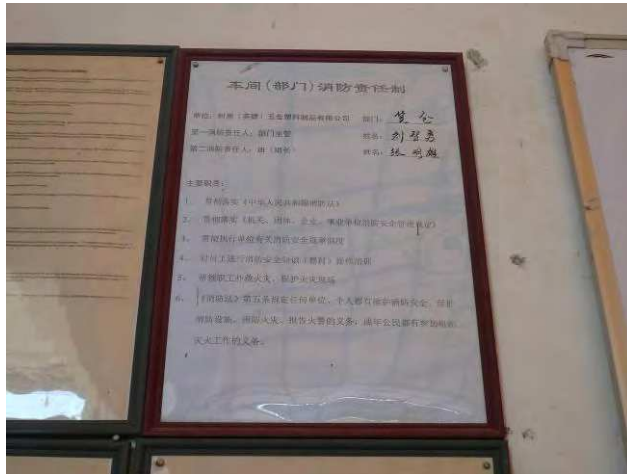 车间(部门)消防责任制
单位: (英德)五金塑料制品有限公司 部门:
第一消防责任人: 部门主管 姓名: 刘
第二消防责任人: 班(组长) 姓名: 张
主要职务:
1、 贯彻落实《中华人民共和国消防法》
2、 贯彻落实《机关、团体、企业、事业单位消防安全管理规定》
3、 贯彻执行单位有关消防安全规章制度
4、 对员工进行消防安全知识(教材)宣传培训
5、 带领职工扑救火灾、保护火灾现场
6、 《消防法》第五条规定任何单位、个人都有维护消防安全、保护
消防设施、预防火灾、报告火警的义务;成年公民都有参加
灭火工作的义务。